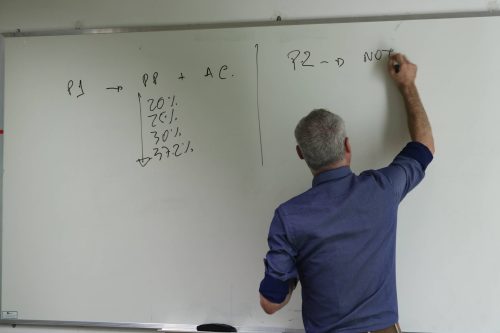 P1 → PP + AC.
20%
25%
30%
37.2%
P2 → NOT